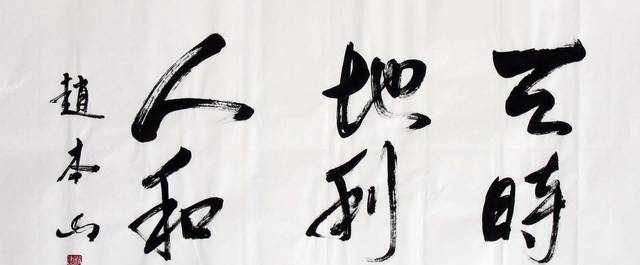 天時
地利
人和
趙本山